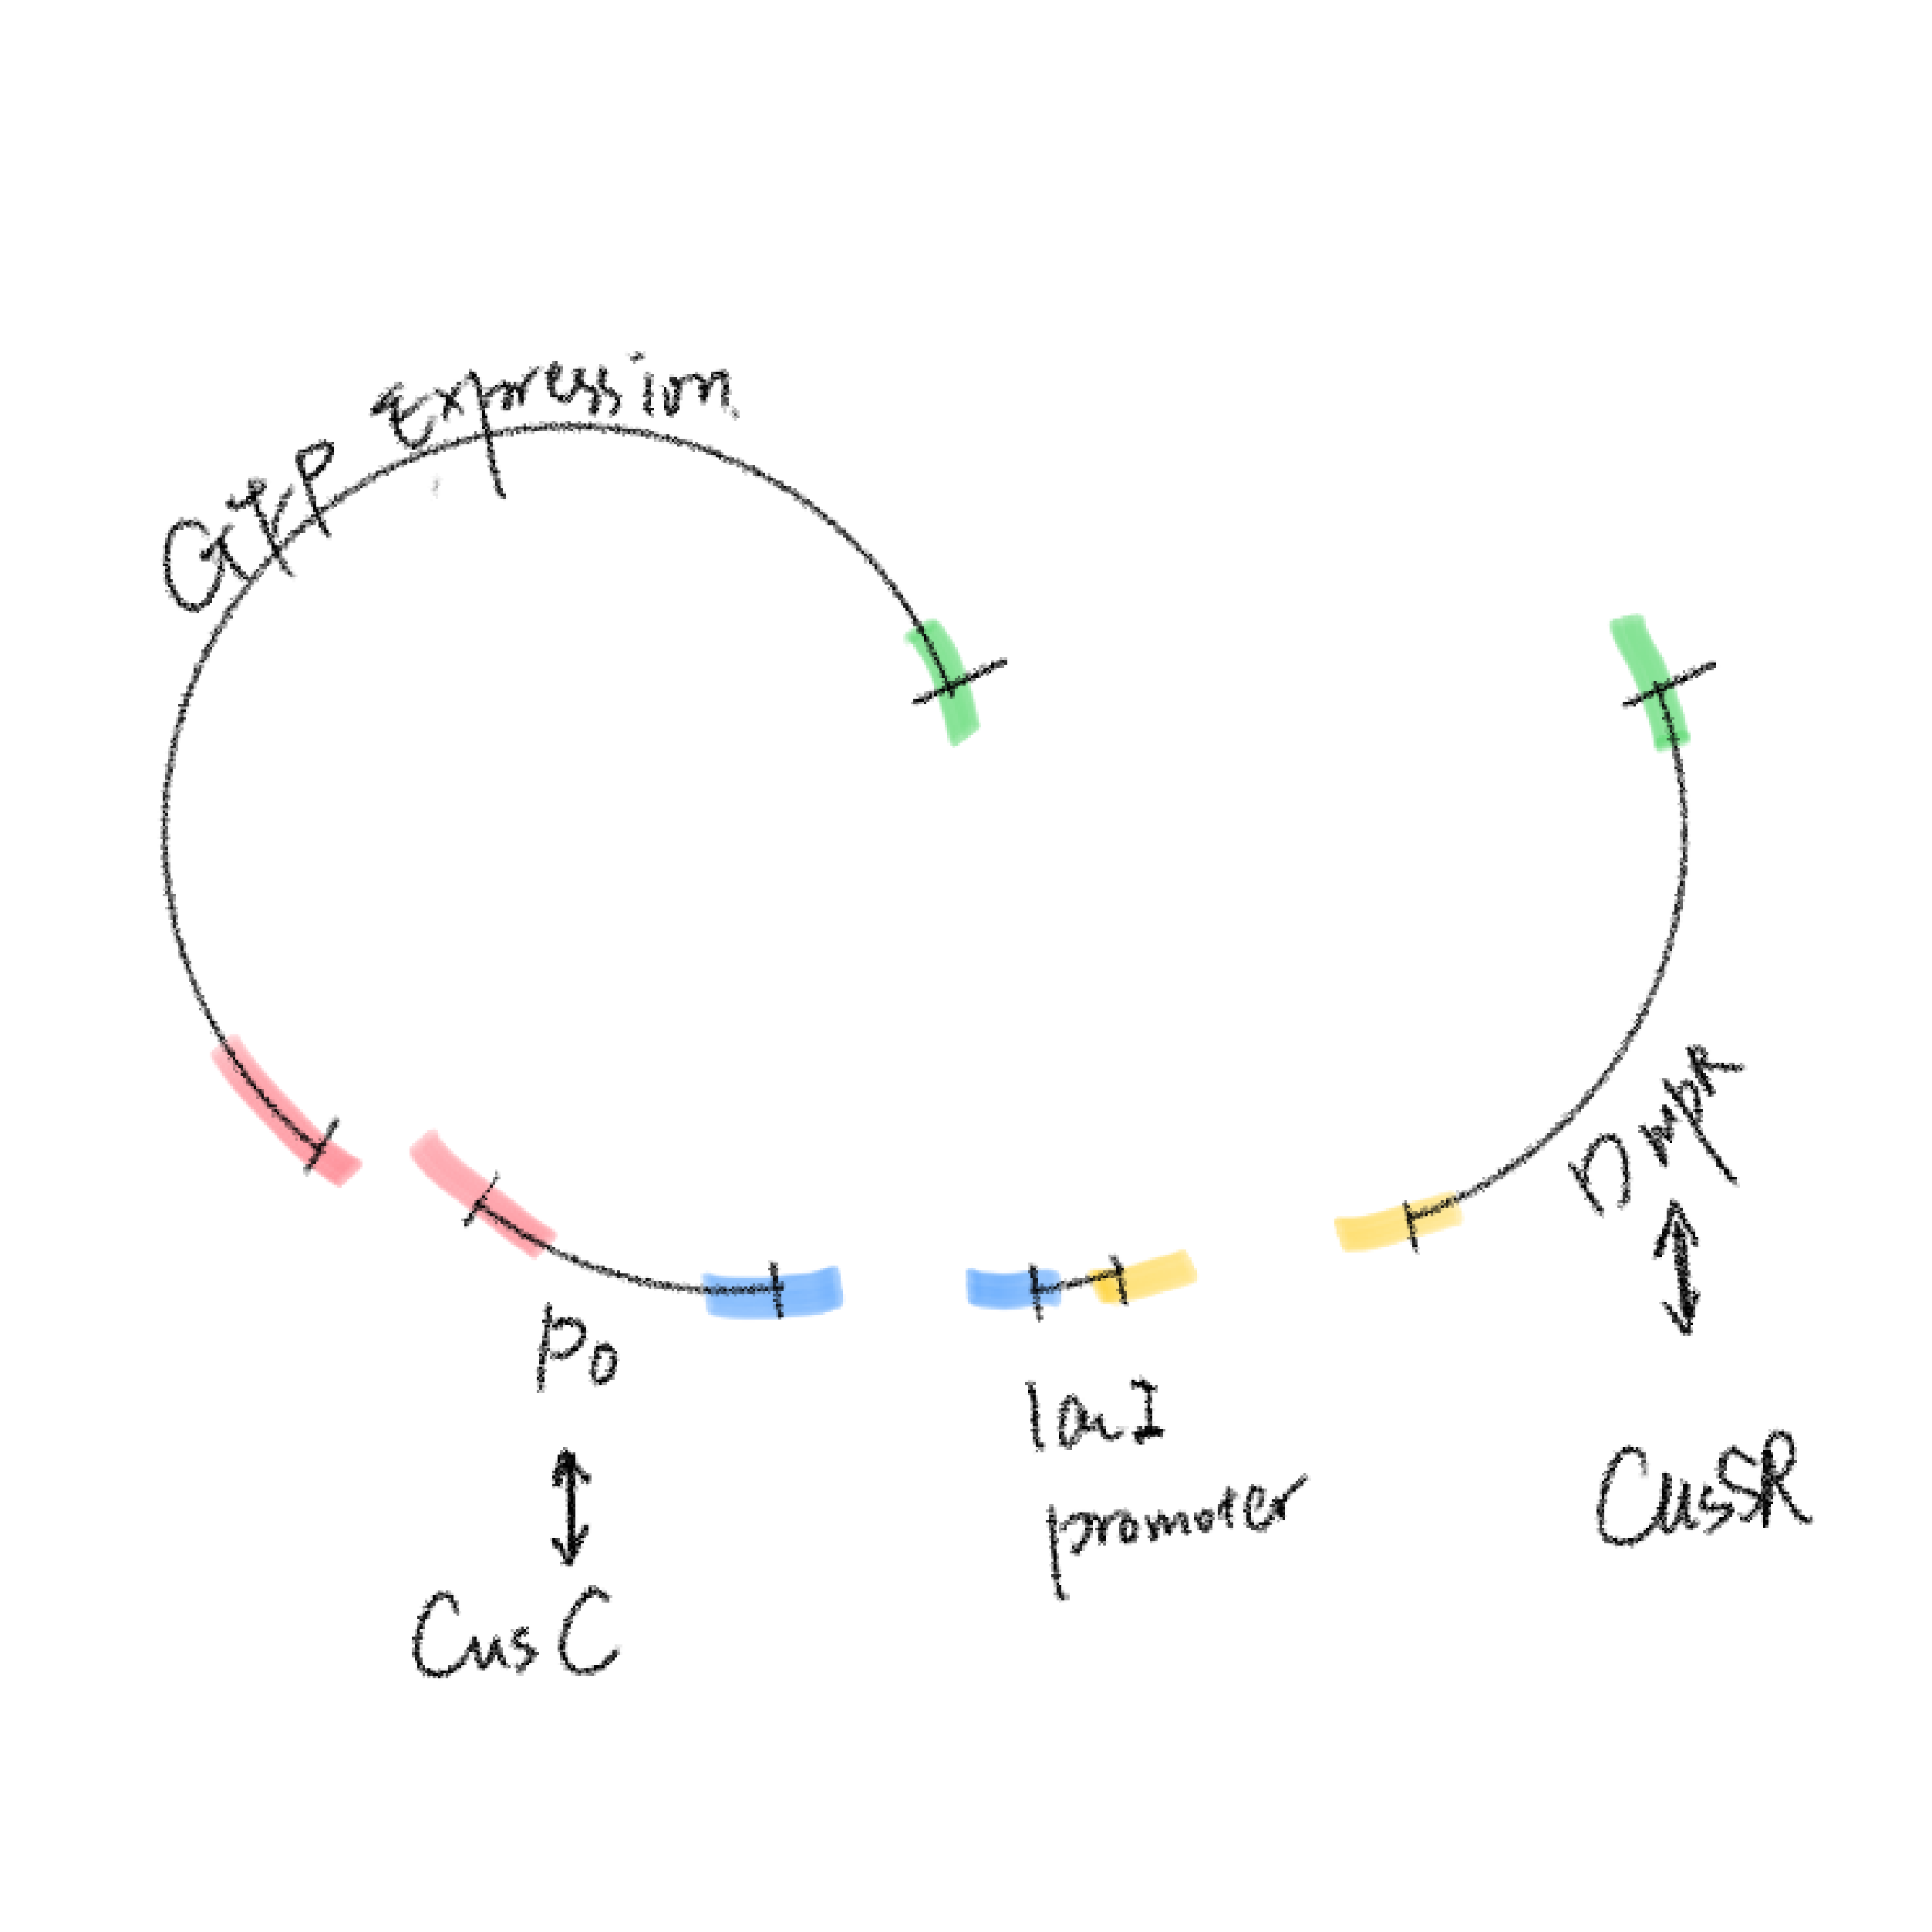 GFP Expression
Po
CusC
lacI
promoter
DmpR
CusSR